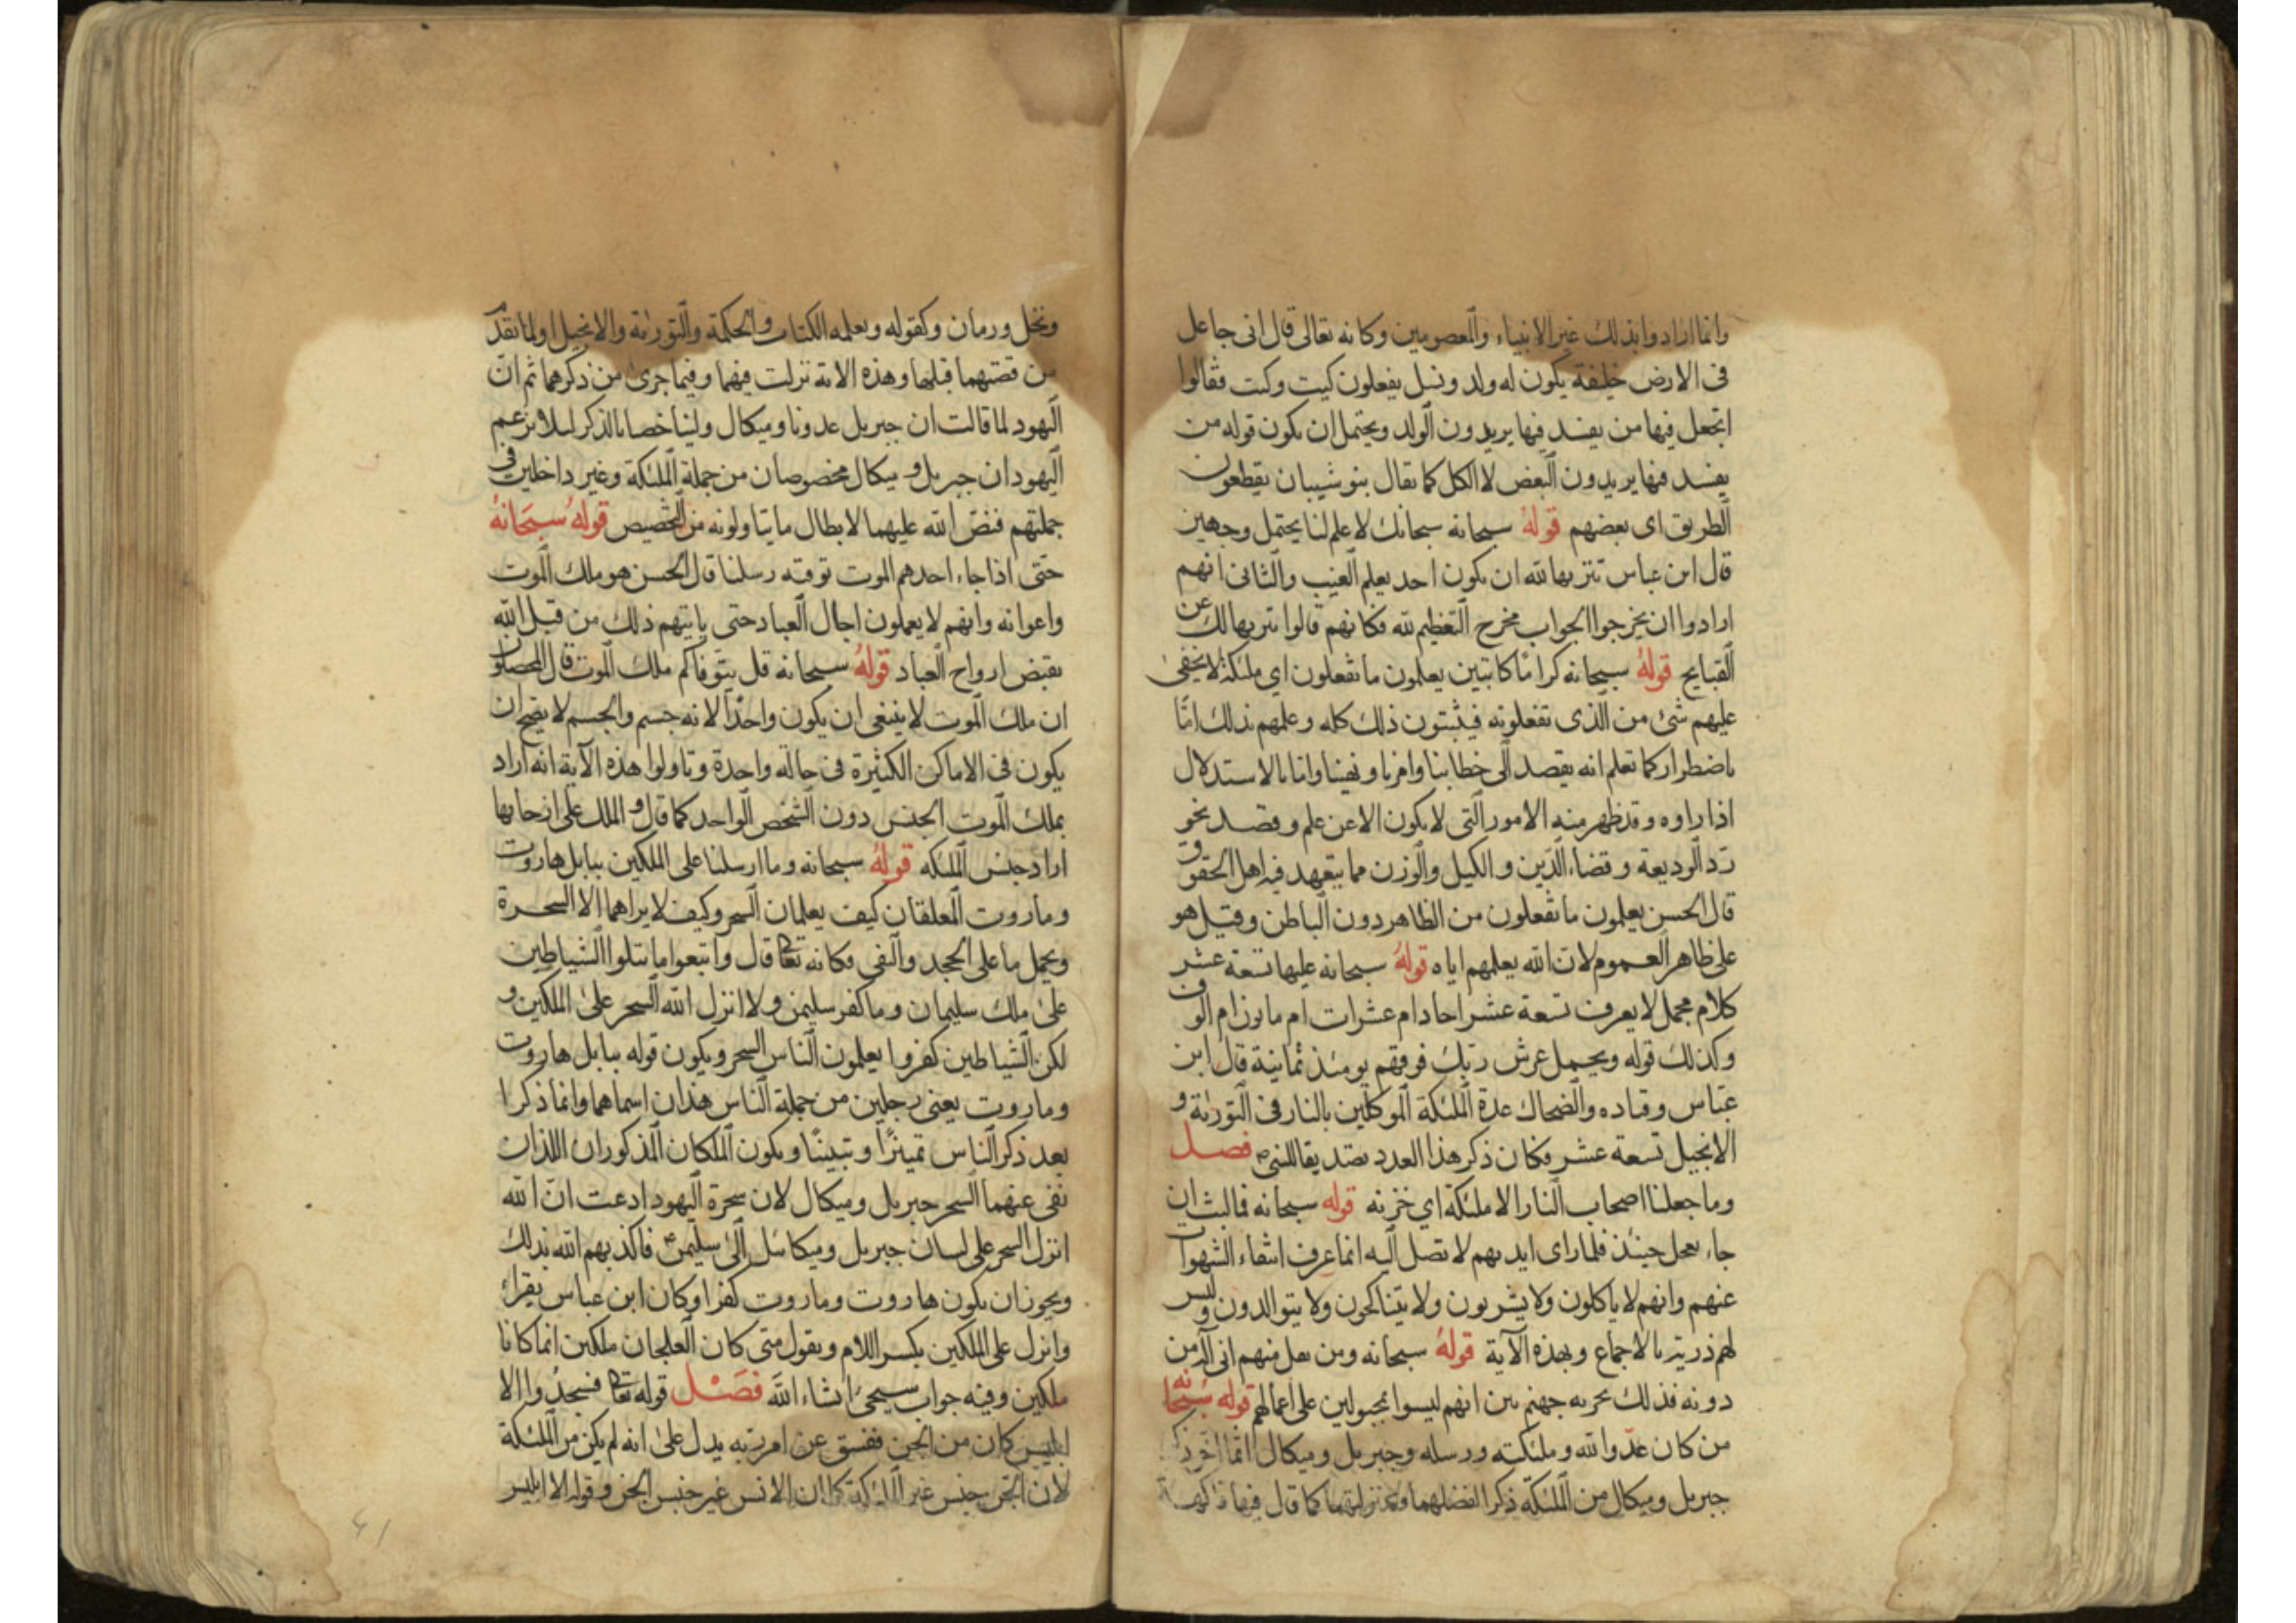 وانما ارادوا بذلك غير الانبياء والمعصومين وكانه تعالى قال انى جاعل
فى الارض خليفة يكون له ولد ونسل يفعلون كيت وكيت فقالوا
اتجعل فيها من يفسد فيها يريدون الولد ويحتمل ان يكون قوله من
يفسد فيها يريدون البعض لا الكل كما يقال بنو شيبان يقطعون
الطريق اى بعضهم قوله سبحانه سبحانك لا علم لنا يحتمل وجهين
قال ابن عباس تنزيها لله ان يكون احد يعلم الغيب والثانى انهم
ارادوا ان يخرجوا الجواب مخرج التعظيم لله فكانهم قالوا تنزيها لك عن
القبايح قوله سبحانه كراما كاتبين يعلمون ما تفعلون اي ملئكة لا يخفى
عليهم شئ من الذى تفعلونه فيثبتون ذلك كله وعلمهم بذلك امّا
باضطرار كما تعلم انه يقصد الى خطابنا وامرنا ونهينا واما بالاستدلال
اذا راوه وقد ظهر منه الامور التى لا يكون الا عن علم وقصد نحو
ردّ الوديعة وقضاء الدّين والكيل والوزن مما يتعهد فيه اهل الحقوق
قال الحسن يعلمون ما تفعلون من الظاهر دون الباطن وقيل هو
على ظاهر العموم لان الله يعلمهم اياه قوله سبحانه عليها تسعة عشر
كلام مجمل لا يعرف تسعة عشر احاد ام عشرات ام مايون ام الوف
وكذلك قوله ويحمل عرش ربّك فوقهم يومئذ ثمانية قال ابن
عبّاس وقتاده والضحاك عدة الملئكة الموكلين بالنار فى التورية و
الانجيل تسعة عشر فكان ذكر هذا العدد تصديقا للنبى فصل
وما جعلنا اصحاب النار الا ملئكة اي خزنه قوله سبحانه فما لبث ان
جاء بعجل حنيذ فلما راى ايديهم لا تصل اليه انما عرف انتفاء الشهوات
عنهم وانهم لا ياكلون ولا يشربون ولا يتناكحون ولا يتوالدون وليس
لهم ذرية بالاجماع وبهذه الآية قوله سبحانه ومن يقل منهم انى اله من
دونه فذلك نجزيه جهنم بين انهم ليسوا بمجبولين على اعمالهم قوله سبحانه
من كان عدوا لله وملئكته ورسله وجبريل وميكال انما
جبريل وميكال من الملئكة ذكرا لفضلهما ومنزلتهما كما قال فيها فاكهة
ونخل ورمان وكقوله ويعلمه الكتاب والحكمة والتورية والانجيل او لما تقدم
من قصتهما قبلها وهذه الاية نزلت فيهما وفيما جرى من ذكرهما ثم انّ
اليهود لما قالت ان جبريل عدونا وميكال ولينا خصا بالذكر لئلا يزعم
اليهود ان جبريل و ميكال مخصوصان من جملة الملئكة وغير داخلين فى
جملتهم فنصّ الله عليهما لابطال ما يتاولونه من التخصيص قوله سبحانه
حتى اذا جاء احدهم الموت توفته رسلنا قال الحسن هو ملك الموت
واعوانه وانهم لا يعلمون اجال العباد حتى ياتيهم ذلك من قبل الله
بقبض ارواح العباد قوله سبحانه قل يتوفاكم ملك الموت قال المحصلون
ان ملك الموت لا ينبغى ان يكون واحدًا لانه جسم والجسم لا يصح ان
يكون فى الاماكن الكثيرة فى حالة واحدة وتاولوا هذه الآية انه اراد
بملك الموت الجنس دون الشخص الواحد كما قال و الملك على ارجائها
اراد جنس الملئكه قوله سبحانه وما ارسلنا على الملكين ببابل هاروت
وماروت المعلقان كيف يعلمان السحر وكيف لا يراهما الا السحرة
ويحمل ما على الجحد والنفى فكانه تعا قال واتبعوا ما تتلوا الشياطين
على ملك سليمان وما كفر سليمن ولا انزل الله السحر على الملكين و
لكن الشياطين كفروا يعلمون الناس السحر ويكون قوله ببابل هاروت
وماروت يعنى رجلين من جملة الناس هذان اسماهما وانما ذكرا
بعد ذكر الناس تمييزًا وتبيينًا ويكون الملكان المذكوران اللذان
نفى عنهما السحر جبريل وميكال لان سحرة اليهود ادعت انّ الله
انزل السحر على لسان جبريل وميكائيل الى سليمن فاكذبهم الله بذلك
ويجوز ان يكون هاروت وماروت كفرا وكان ابن عباس يقراء
وانزل على الملكين بكسر اللام ويقول متى كان العلجان ملكين انما كانا
ملكين وفيه جواب سيجئ انشاء الله فصل قوله تعا فسجدوا الا
ابليس كان من الجن ففسق عن امر ربه يدل على انه لم يكن من الملئكة
لان الجن جنس غير الملئكة كما ان الانس غير جنس الجن وقوله الا ابليس